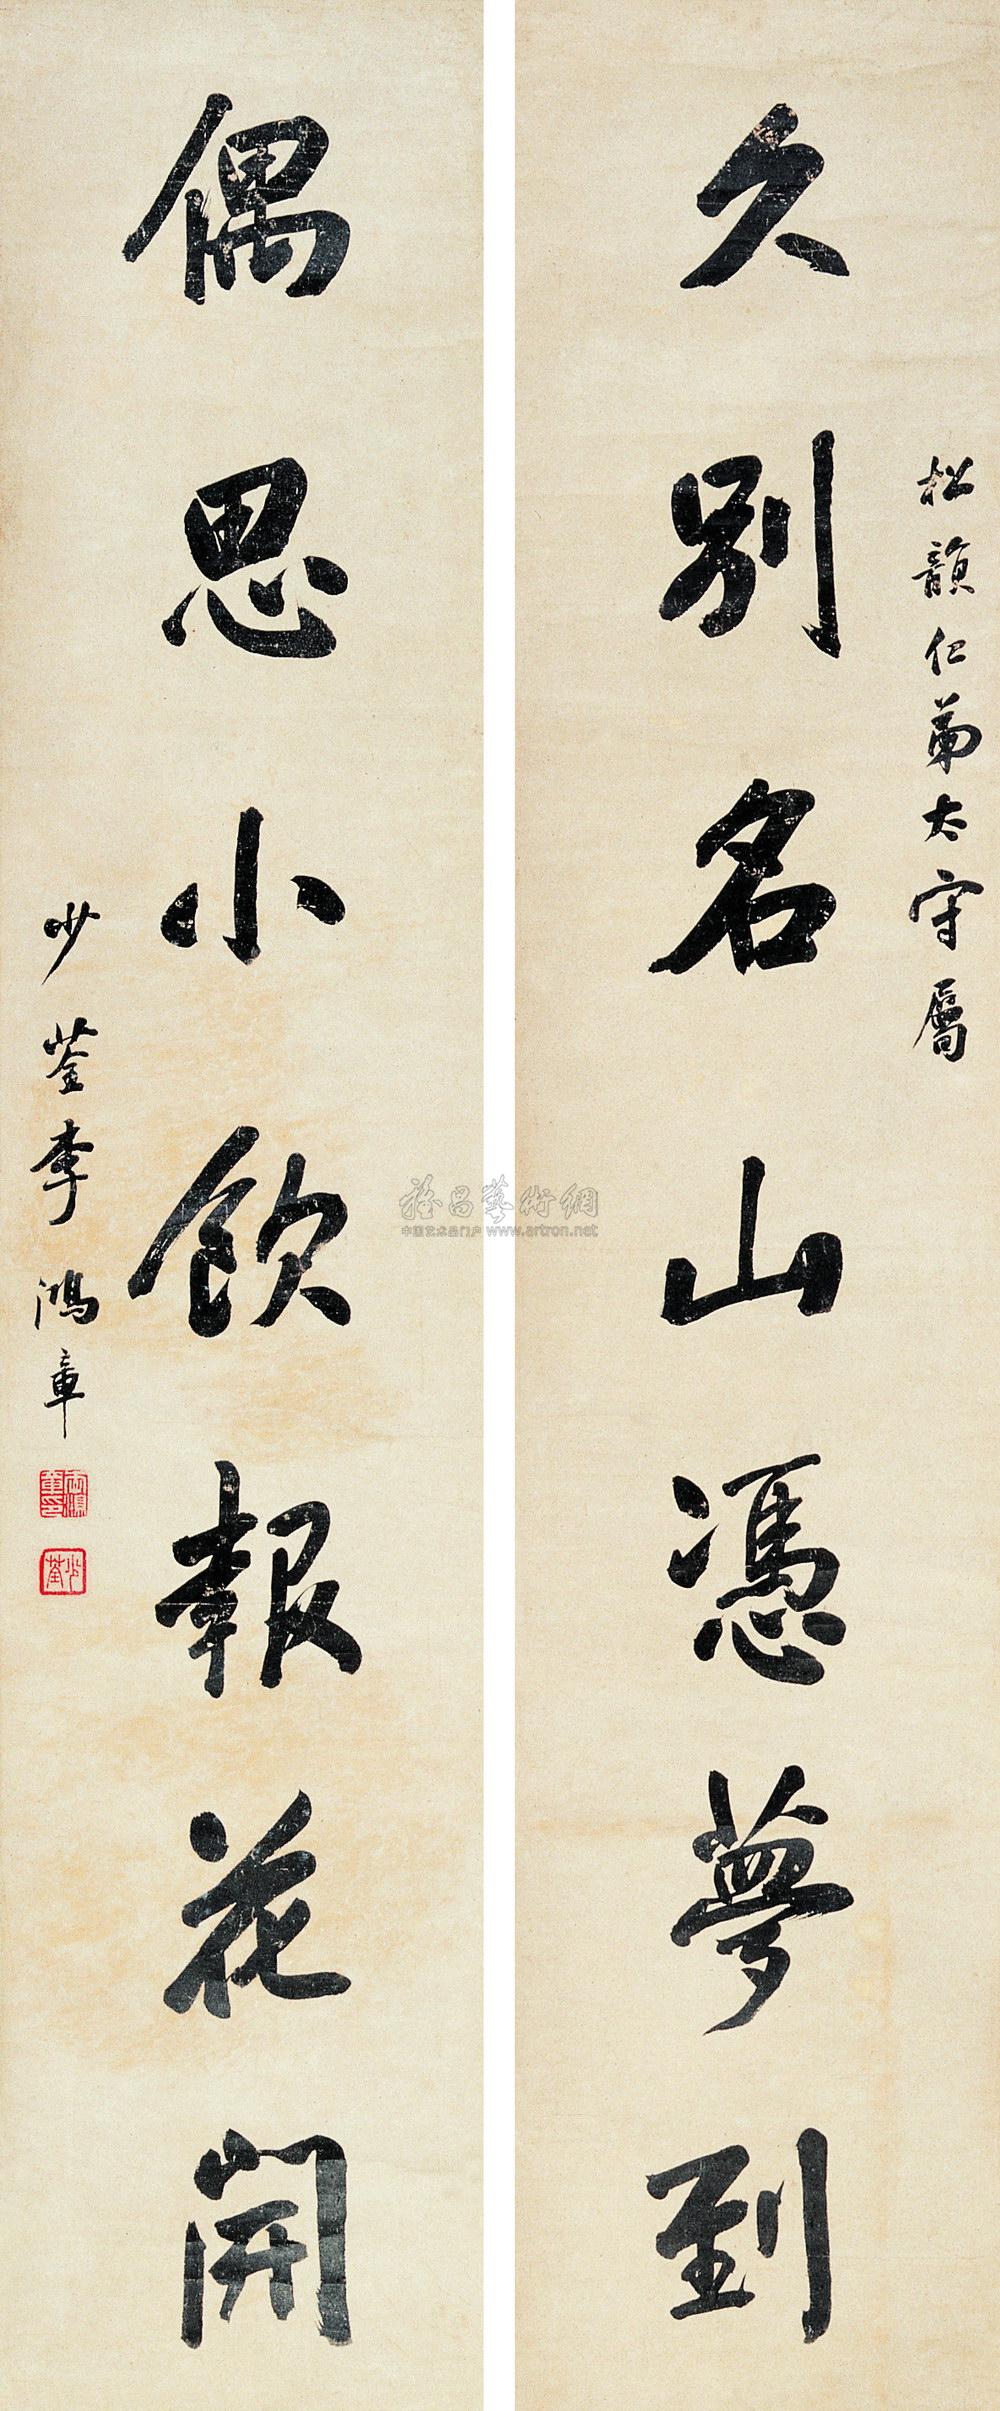 松韻仁弟太守屬
久別名山憑夢到
偶思小飲報花開
少荃李鴻章
李鴻章印
少荃
雅昌藝術網
中国艺术品门户 www.artron.net